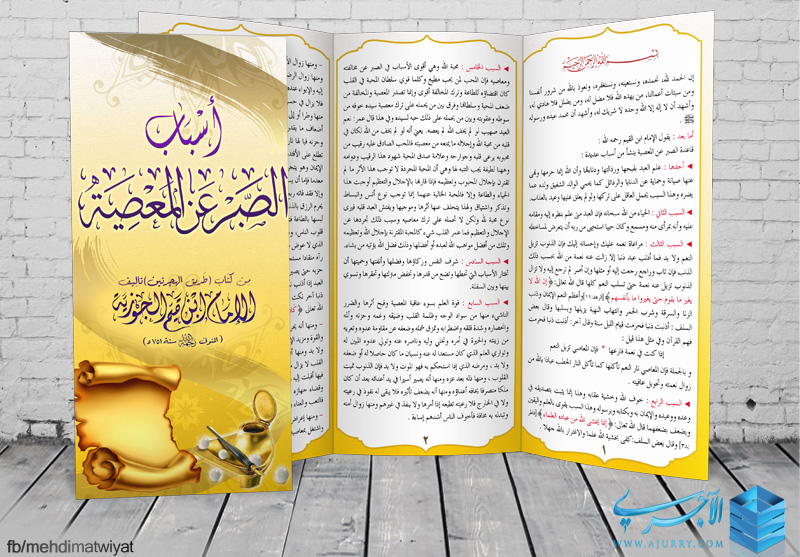 أسباب
الصبر عن المعصية
من كتاب (طريق الهجرتين) تأليف
الإمام ابن قيم الجوزية
(المتوفى رحمه الله سنة ٧٥١ هـ)
بسم الله الرحمن الرحيم
إن الحمد لله، نحمده، ونستعينه، ونستغفره، ونعوذ بالله من شرور أنفسنا
ومن سيئات أعمالنا، من يهده الله فلا مضل له، ومن يضلل فلا هادي له،
وأشهد أن لا إله إلا الله وحده لا شريك له، وأشهد أن محمد عبده ورسوله
ﷺ .
أما بعد : يقول الإمام ابن القيم رحمه الله :
قاعدة الصبر عن المعصية ينشأ من أسباب عديدة :
◄ أحدها : علم العبد بقبحها ورذالتها ودناءتها وأن الله إنما حرمها ونهى
عنها صيانة وحماية عن الدنايا والرذائل كما يحمي الوالد الشفيق ولده عما
يضره وهذا السبب يحمل العاقل على تركها ولو لم يعلق عليها وعيد بالعذاب.
◄ السبب الثاني : الحياء من الله سبحانه فإن العبد متى علم بنظره إليه ومقامه
عليه وأنه بمرأى منه ومسمع وكان حييا استحيى من ربه أن يتعرض لمساخطه
◄ السبب الثالث : مراعاة نعمه عليك وإحسانه إليك فإن الذنوب تزيل
النعم ولا بد فما أذنب عبد ذنبا إلا زالت عنه نعمة من الله بحسب ذلك
الذنب فإن تاب وراجع رجعت إليه أو مثلها وإن أصر لم ترجع إليه ولا تزال
الذنوب تزيل عنه نعمة حتى تسلب النعم كلها قال الله تعالى: ﴿إن الله لا
يغير ما بقوم حتى يغيروا ما بأنفسهم﴾ [الرعد:١١] وأعظم النعم الإيمان وذنب
الزنا والسرقة وشرب الخمر وانتهاب النهبة يزيلها ويسلبها وقال بعض
السلف : أذنبت ذنبا فحرمت قيام الليل سنة وقال آخر: أذنبت ذنبا فحرمت
فهم القرآن وفي مثل هذا قيل :
إذا كنت في نعمة فارعها * فإن المعاصي تزيل النعم
و بالجملة فإن المعاصي نار النعم تأكلها كما تأكل النار الحطب عياذا بالله من
زوال نعمته وتحويل عافيته .
◄ السبب الرابع : خوف الله وخشية عقابه وهذا إنما يثبت بتصديقه في
وعده ووعيده والإيمان به وبكتابه وبرسوله وهذا السبب يقوى بالعلم واليقين
ويضعف بضعفهما قال الله تعالى: ﴿إنما يخشى الله من عباده العلماء﴾ [فاطر:
٢٨] وقال بعض السلف: كفى بخشية الله علما والاغترار بالله جهلا .
١
◄ السبب الخامس : محبة الله وهي أقوى الأسباب في الصبر عن مخالفته
ومعاصيه فإن المحب لمن يحب مطيع وكلما قوي سلطان المحبة في القلب
كان اقتضاؤه للطاعة وترك المخالفة أقوى وإنما تصدر المعصية والمخالفة من
ضعف المحبة وسلطانها وفرق بين من يحمله على ترك معصية سيده خوفه من
سوطه وعقوبته وبين من يحمله على ذلك حبه لسيده وفي هذا قال عمر: نعم
العبد صهيب لو لم يخف الله لم يعصه. يعني أنه لو لم يخف من الله لكان في
قلبه من محبة الله وإجلاله ما يمنعه من معصيته فالمحب الصادق عليه رقيب من
محبوبه يرعى قلبه وجوارحه وعلامة صدق المحبة شهود هذا الرقيب ودوامه
وههنا لطيفة يجب التنبه لها وهي أن المحبة المجردة لا توجب هذا الأثر ما لم
تقترن بإجلال المحبوب وتعظيمه فإذا قارنها بالإجلال والتعظيم أوجبت هذا
الحياء والطاعة وإلا فالمحبة الخالية عنهما إنما توجب نوع أنس وانبساط
وتذكر واشتياق ولهذا يتخلف عنها أثرها وموجبها ويفتش العبد قلبه فيرى
نوع محبة لله ولكن لا تحمله على ترك معاصيه وسبب ذلك تجردها عن
الإجلال والتعظيم فما عمر القلب شيء كالمحبة المقترنة بإجلال الله وتعظيمه
وتلك من أفضل مواهب الله لعبده أو أفضلها وذلك فضل الله يؤتيه من يشاء.
◄ السبب السادس : شرف النفس وزكاؤها وفضلها وأنفتها وحميتها أن
تختار الأسباب التي تحطها وتضع من قدرها وتخفض منزلتها وتحقرها وتسوي
بينها وبين السفلة.
◄ السبب السابع : قوة العلم بسوء عاقبة المعصية وقبح أثرها والضرر
الناشيء منها من سواد الوجه وظلمة القلب وضيقه وغمه وحزنه وألمه
وانحصاره وشدة قلقه واضطرابه وتمزق شمله وضعفه عن مقاومة عدوه وتعريه
من زينته والحيرة في أمره وتخلي وليه وناصره عنه وتولي عدوه المبين له
وتواري العلم الذي كان مستعدا له عنه ونسيان ما كان حاصلا له أو ضعفه
ولا بد ، ومرضه الذي إذا استحكم به فهو الموت ولا بد فإن الذنوب تميت
القلوب ، ومنها ذله بعد عزه ومنها أنه يصير أسيرا في يد أعدائه بعد أن كان
ملكا متصرفا يخافه أعداؤه ومنها أنه يضعف تأثيره فلا يبقى له نفوذ في رعيته
ولا في الخارج فلا رعيته تطيعه إذا أمرها ولا ينفذ في غيرهم ومنها زوال أمنه
وتبدله به مخافة فأخوف الناس أشدهم إساءة .
٢
الآجري
WWW.AJURRY.COM
fb/mehdimatwiyat